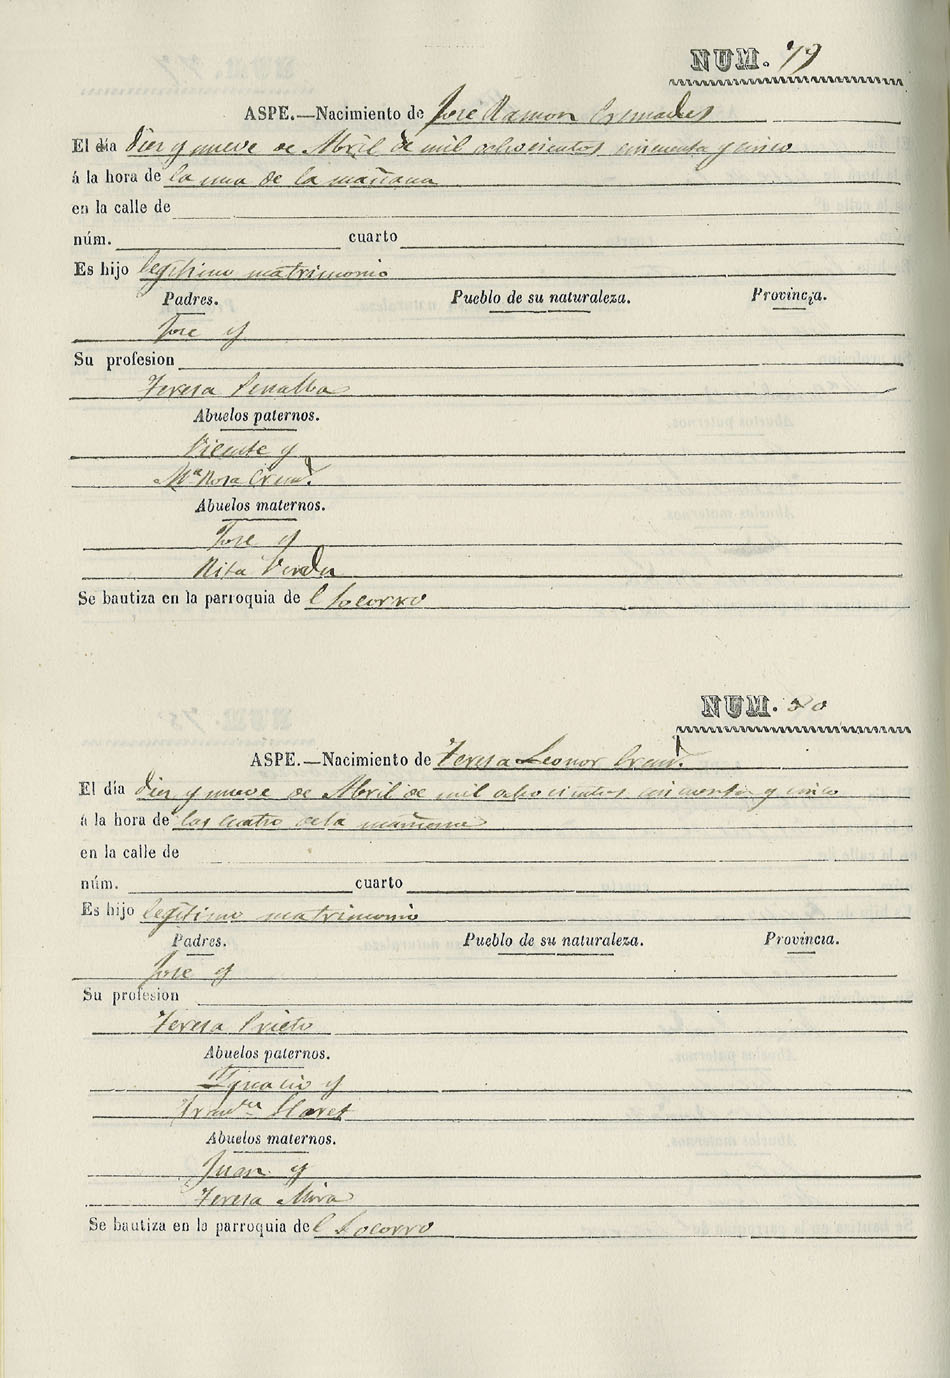 NUM. 79
ASPE.—Nacimiento de Jose Ramon Cremades
El dia diez y nueve de Abril de mil ochocientos cincuenta y cinco
á la hora de la una de la mañana
en la calle de
núm. cuarto
Es hijo legitimo matrimonio
Padres. Pueblo de su naturaleza. Provincia.
Jose y
Su profesion
Teresa Penalba
Abuelos paternos.
Vicente y
Mª Rosa Crem.ˢ
Abuelos maternos.
Jose y
Rita Verdu
Se bautiza en la parroquia de l Socorro
NUM. 80
ASPE.—Nacimiento de Teresa Leonor Crem.ˢ
El día diez y nueve de Abril de mil ochocientos cincuenta y cinco
á la hora de las cuatro de la mañana
en la calle de
núm. cuarto
Es hijo legitimo matrimonio
Padres. Pueblo de su naturaleza. Provincia.
Jose y
Su profesion
Teresa Prieto
Abuelos paternos.
Ignacio y
Fran.ᶜᵃ Lloret
Abuelos maternos.
Juan y
Teresa Mira
Se bautiza en la parroquia de l Socorro